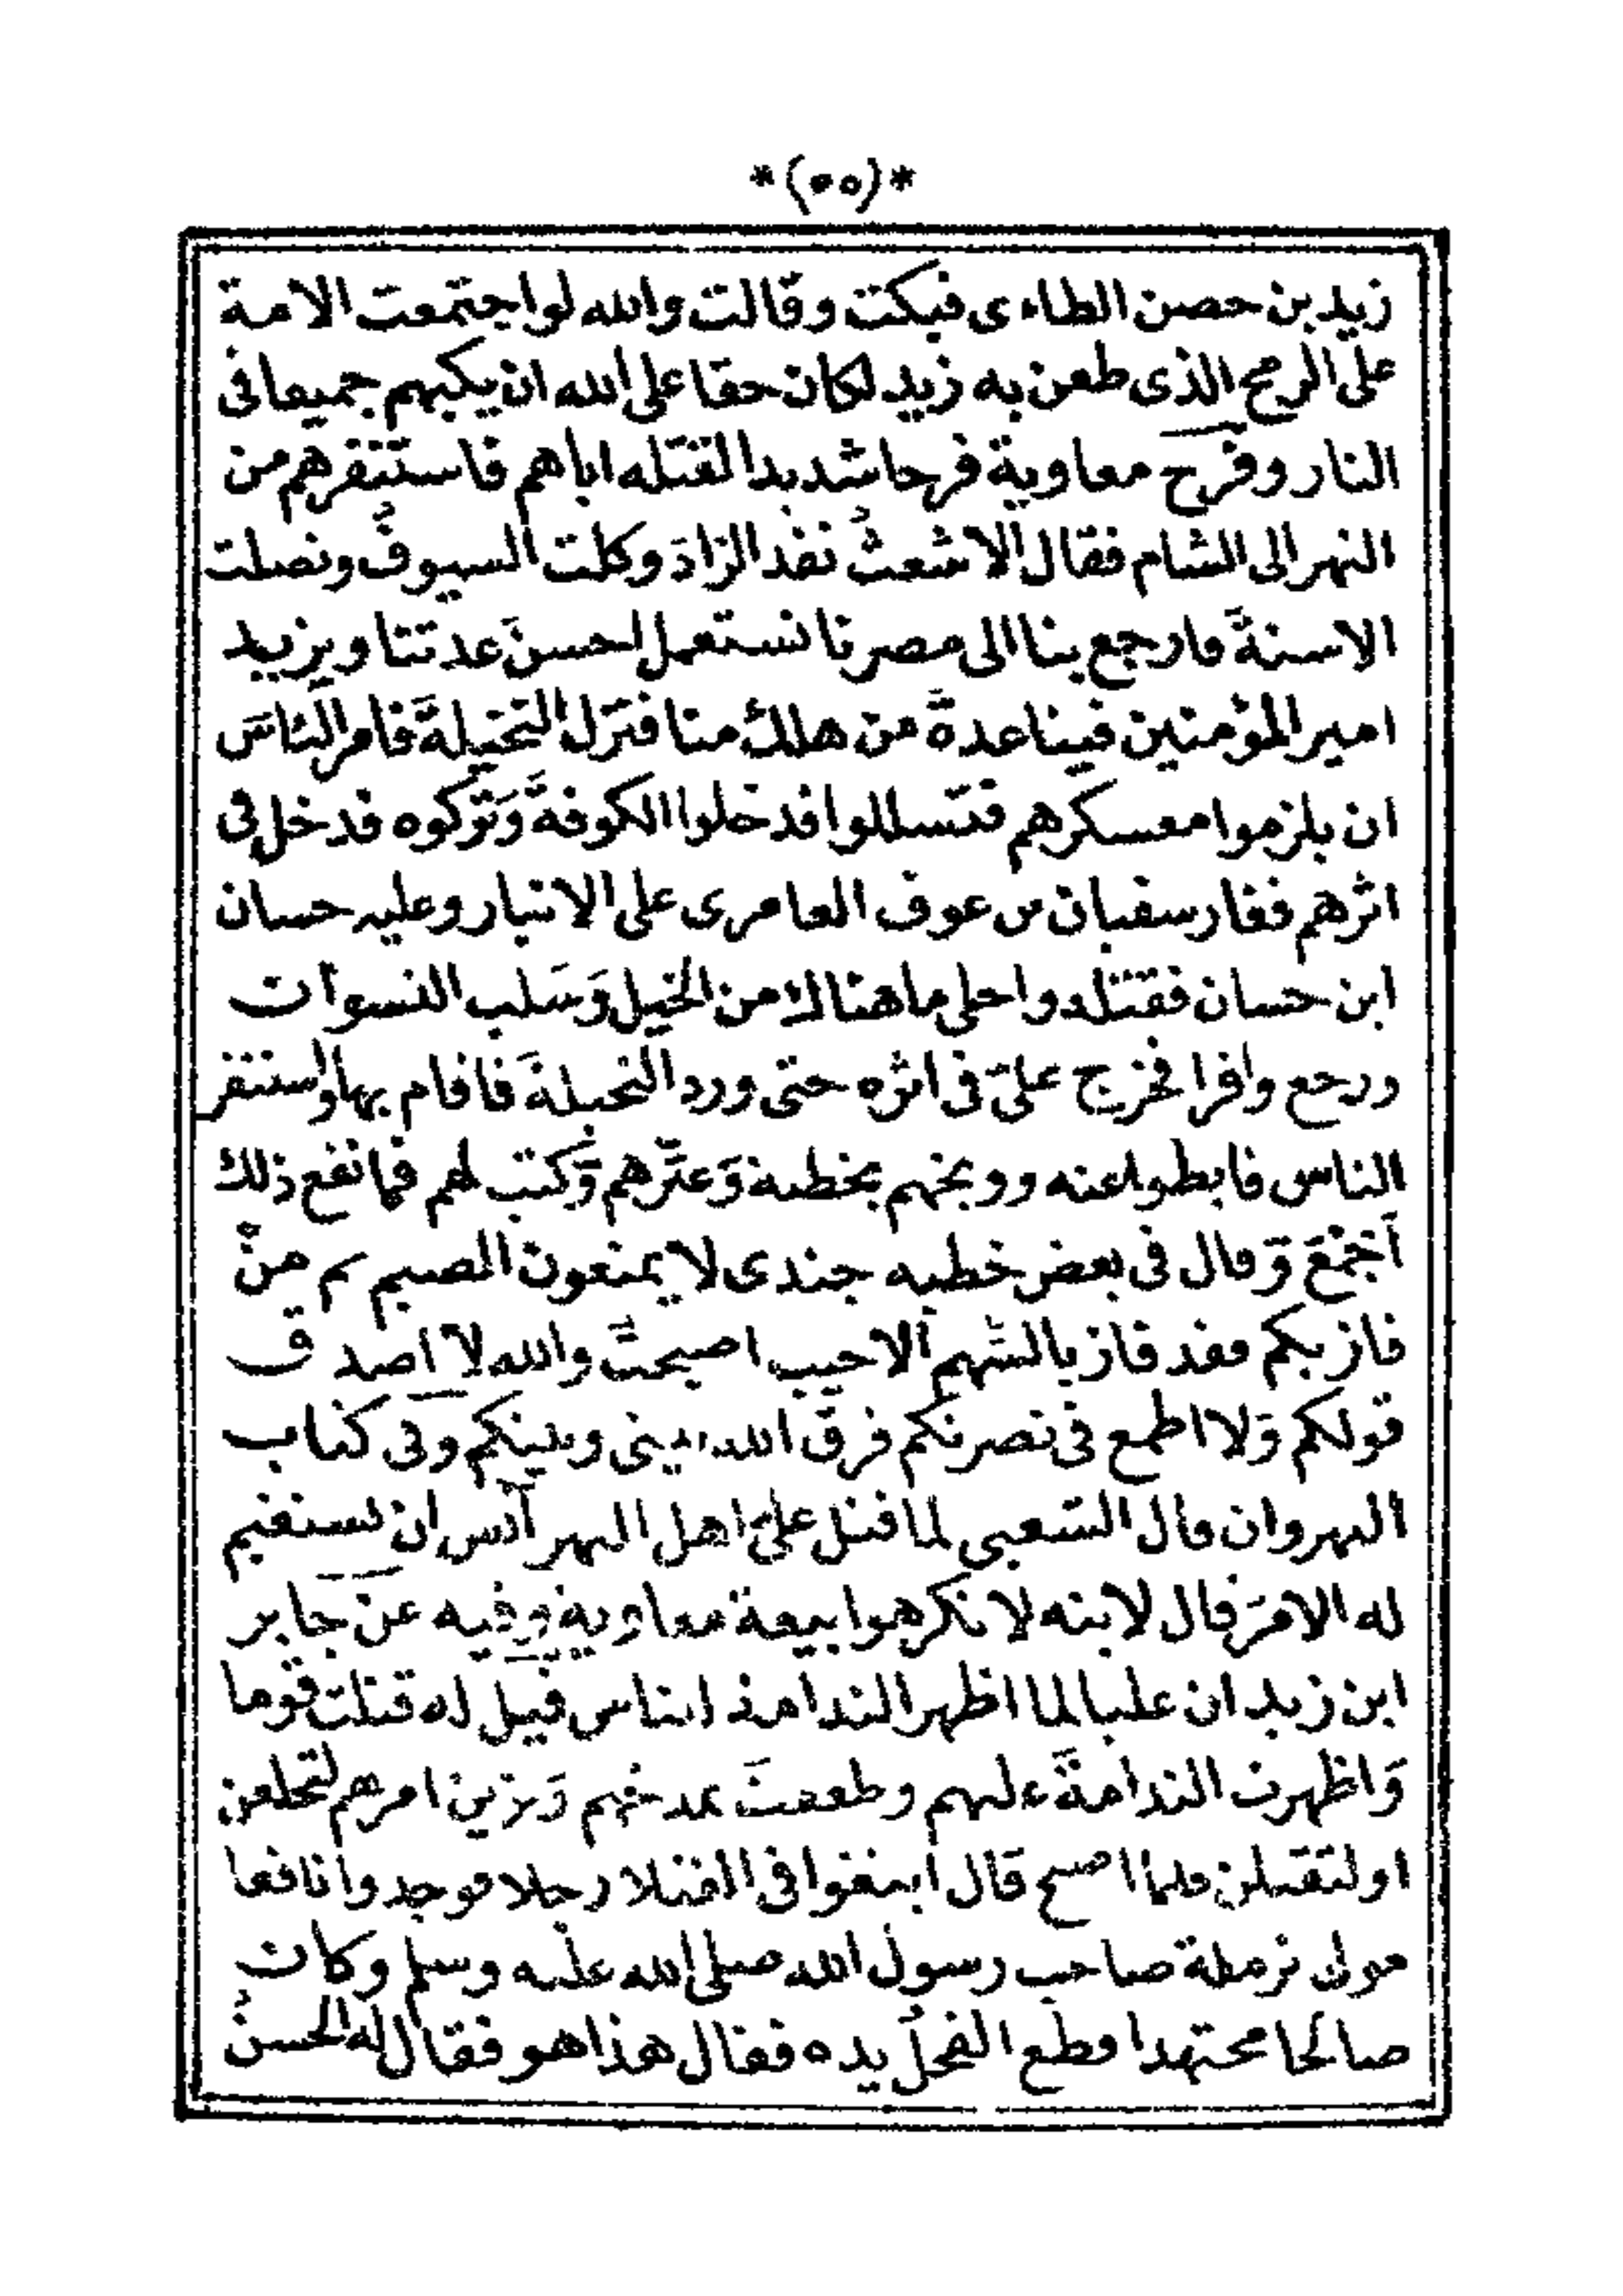 *(٥٥)*
زيد بن حصن الطاءى فبكت وقالت والله لو اجتمعت الامة
على الرمح الذى طعن به زيد لكان حقا على الله ان يكبهم جميعا فى
النار وفرح معاوية فرحا شديدا لقتله اياهم فاستنفرهم من
النهر الى الشام فقال الاشعث نفد الزاد وكلت السيوف ونصلت
الاسنة فارجع بنا الى مصرنا نستعمل لحسن عدتنا ويزيد
امير المؤمنين فينا عدة من هلك منا فنزل النخيلة فامر الناس
ان يلزموا معسكرهم فتسللوا فدخلوا الكوفة وتركوه فدخل فى
اثرهم فغار سفيان بن عوف العامرى على الانبار وعليه حسان
ابن حسان فقتله واحلى ما هناك من الخيل وسلب النسوآت
ورجع وافرا فخرج علىّ فى اثره حتى ورد النخيلة فاقام بها واستنفر
الناس فابطوا عنه ووبخهم بخطبة وعيّرهم وكتب لهم فما نفع ذلك
اجمع وقال فى بعض خطبه جندى لا يمنعون الصيم من
فاز بكم فقد فاز بالسّهم الاخيب اصبحت والله لا اصدق
قولكم ولا اطمع فى نصرتكم فرق الله بينى وبينكم وفى كتاب
النهروان قال الشعبى لما قتل علىّ اهل النهر آيس ان تستقيم
له الامر قال لابنه لا تكرهوا بيعة معاوية وفيه عن جابر
ابن زيد ان عليا لما اظهر الندامة للناس قيل له قتلت قوما
واظهرت الندامة عليهم وطعمت بمدحهم وتزين امرهم لتخلعن
او لتقتلن فلما اصبح قال ابتغوا فى القتلا رجلا فوجدوا نافعا
مولى ترملة صاحب رسول الله صلى الله عليه وسلم وكان
صالحا مجتهدا قطع الفحل يده فقال هذا هو فقال له الحسن